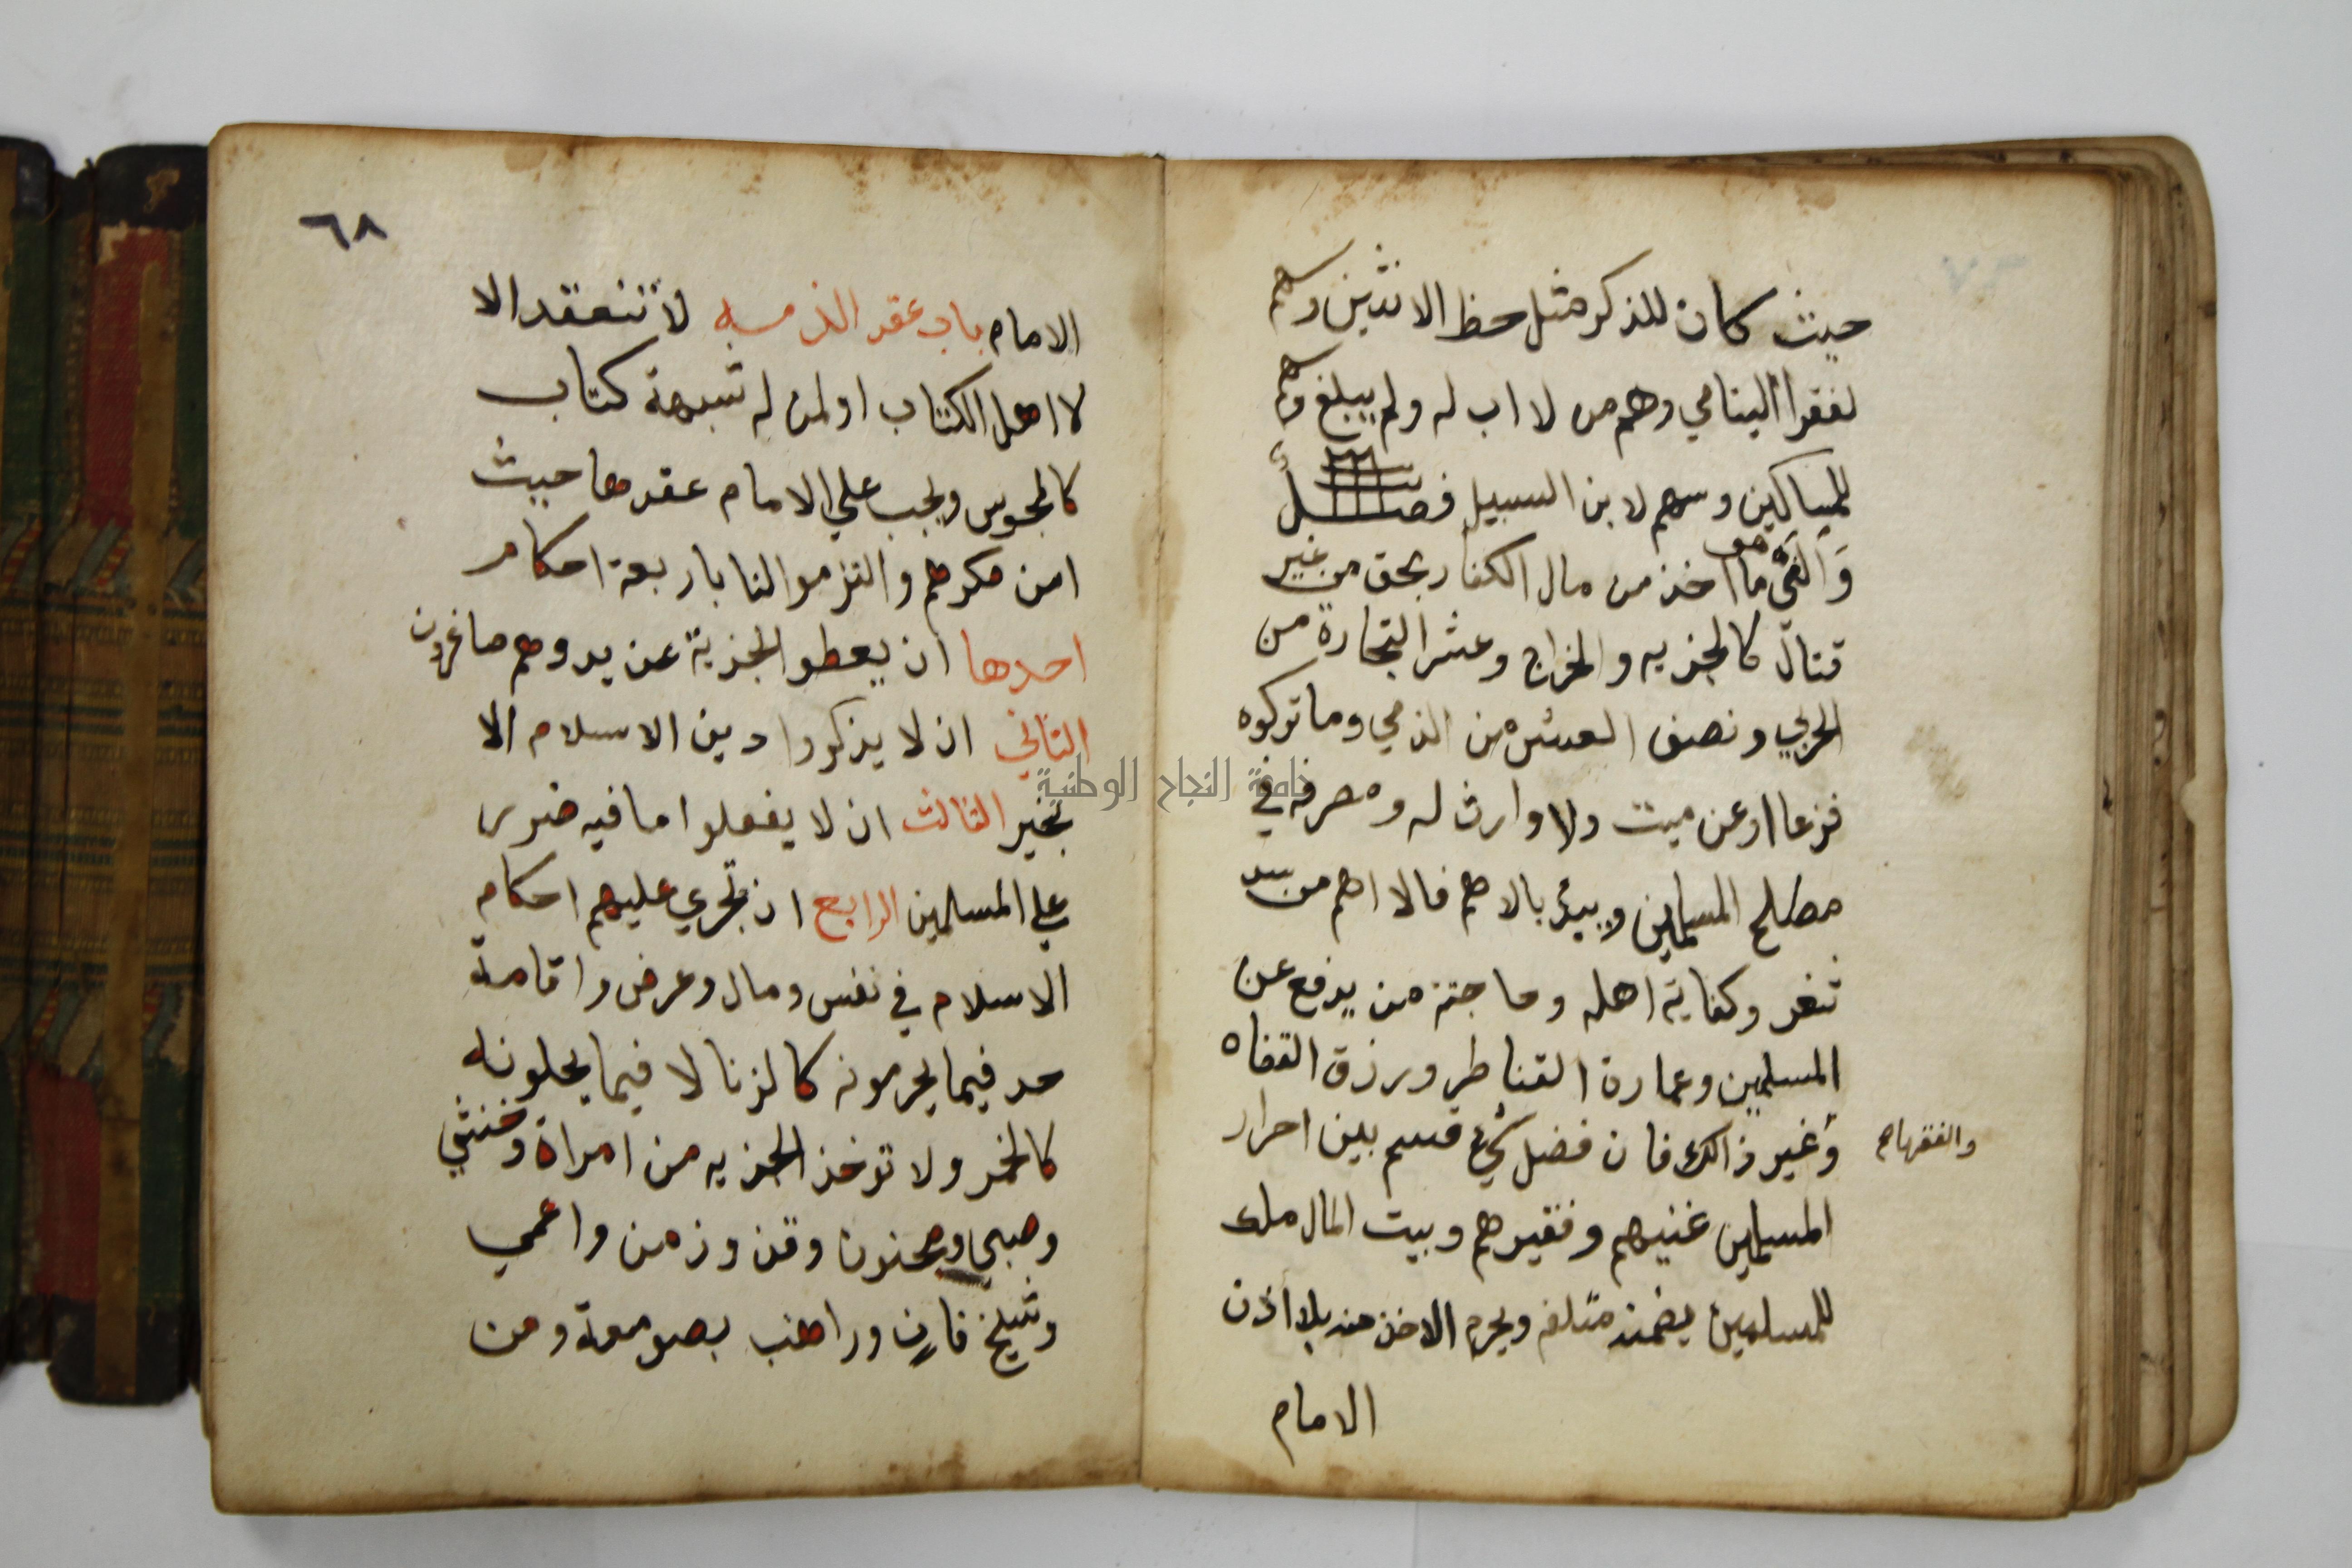 حيث كان للذكر مثل حظ الانثيين وسهم
لفقرا اليتامي وهم من لا اب له ولم يبلغ وسهم
للمساكين وسهم لابن السبيل فصل
والفي هو ما اخذ من مال الكفار بحق من غير
قتال كالجزيه والخراج وعشر التجارة من
الحربي ونصف العشر من الذمي وما تركوه
فزعا او عن ميت ولا وارث له ومصرفه في
مصالح المسلمين ويبدؤ بالاهم فالاهم من سد
ثغر وكفاية اهله وحاجة من يدفع عن
المسلمين وعمارة القناطر ورزق القضاه
والفقهاء
وغير ذالك فان فضل شي قسم بين احرار
المسلمين غنيهم وفقيرهم وبيت المال ملك
للمسلمين يضمنه متلفه ويحرم الاخذ منه بلا اذن
الامام
٦٨
الامام باب عقد الذمه لا تنعقد الا
لاهل الكتاب او لمن له شبهة كتاب
كالمجوس ويجب علي الامام عقدها حيث
امن مكرهم والتزموا لنا باربعة احكام
احدها ان يعطو الجزية عن يد وهم صاغرون
الثاني ان لا يذكروا دين الاسلام الا
بخير الثالث ان لا يفعلوا ما فيه ضرر
علي المسلمين الرابع ان تجري عليهم احكام
الاسلام في نفس ومال وعرض واقامة
حد فيما يحرمونه كالزنا لا فيما يحلونه
كالخمر ولا توخذ الجزيه من امراة وخنثي
وصبي ومجنون وقن وزمن واعمي
وشيخ فان وراهب بصومعة ومن
جامعة النجاح الوطنية